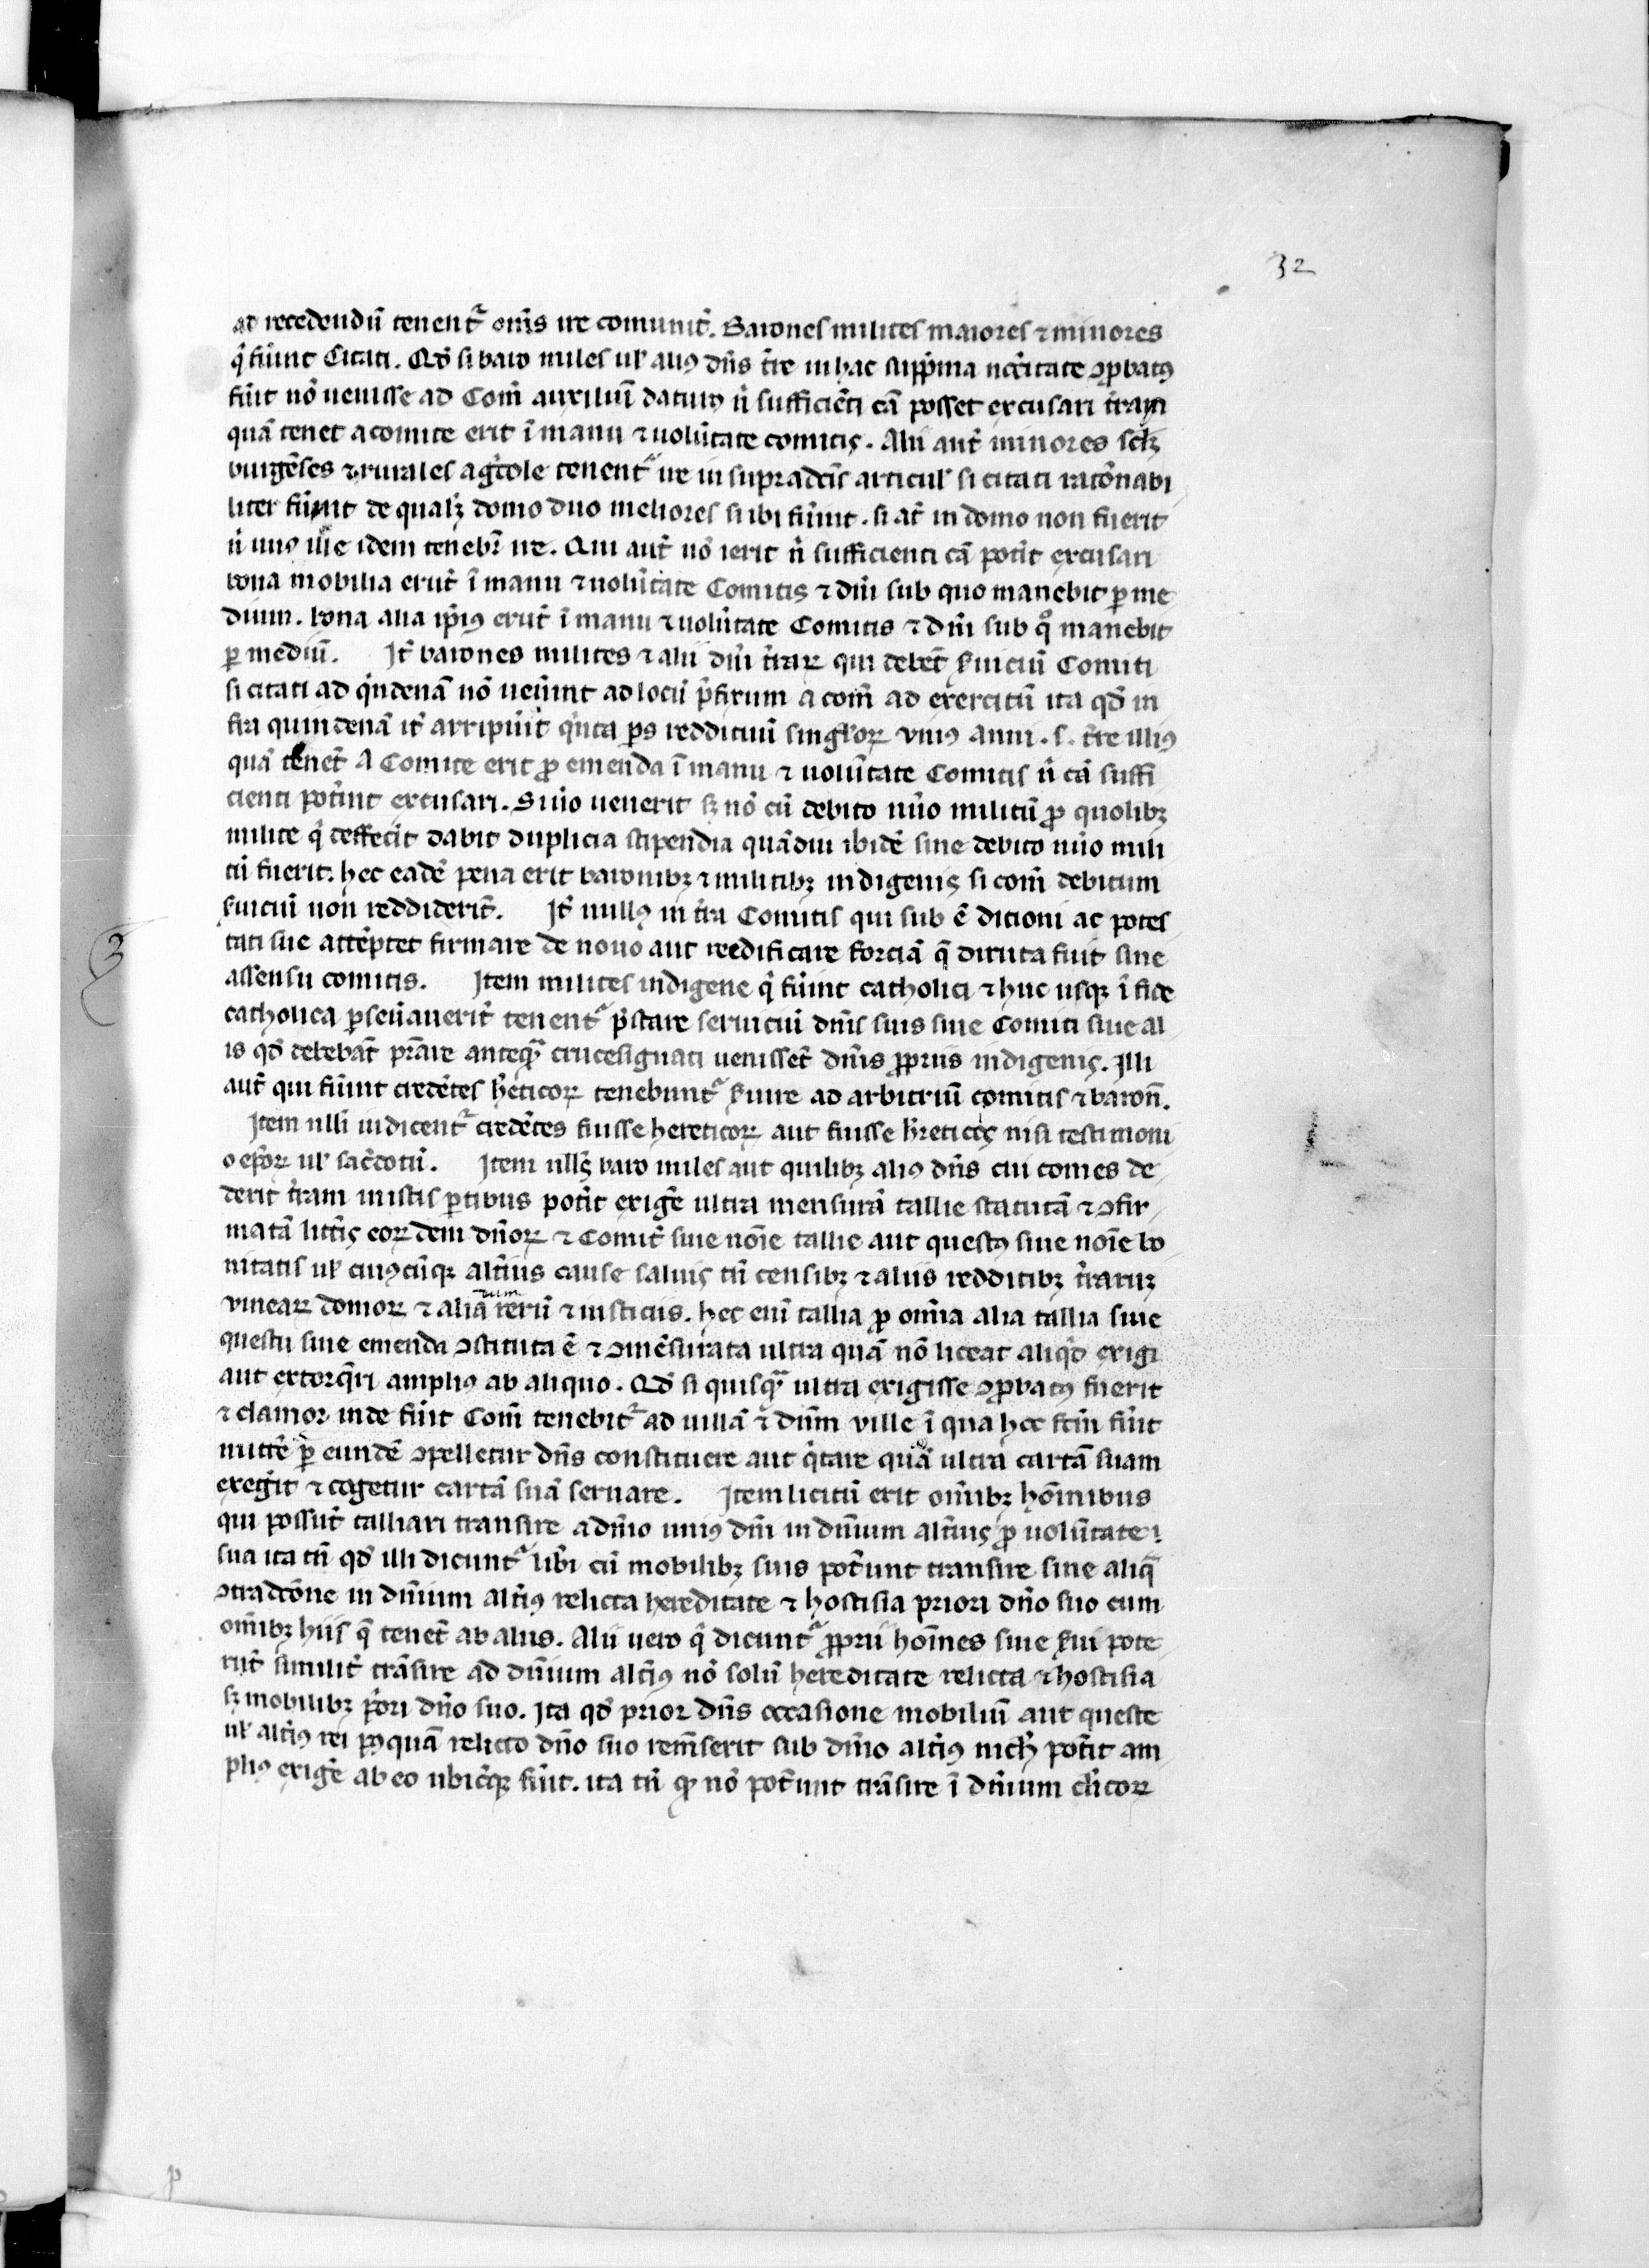 32
ad recedendū tenent᷑ om̄s ire comunit᷑. Barones milites maiores ⁊ minores
q̇ fuẽint Citati. Qđ si baro miles ul̕ aliꝯ dn̄s t̃re in hac supp̃ma nccẽitate ꝓbatꝯ
fuẽit nō uenisse ad Com̃ auxiliū daturꝯ n̄ sufficiẽti cā posset excusari t̃ram
quā tenet a comite erit ī manu ⁊ uolūtate comitis. Alii aut̃ minores scłꝫ
burgẽses ⁊ rurales ag̃cole tenent᷑ ire in supradc̃is articul̕ si citati racõnabi
liter fuẽint de qualꝫ domo duo meliores si ibi fuẽint. si at̃ in domo non fuerit
n̄ unꝯ ille idem tenebit᷑ ire. Qui aut̃ nō ierit n̄ sufficienti cā pot̃it excusari
bona mobilia erūt ī manu ⁊ uolūtate Comitis ⁊ dn̄i sub quo manebit ꝑ me
dium. bona alia ip̃iꝯ erūt ī manu ⁊ uolūtate Comitis ⁊ dn̄i sub qͦ manebit
ꝑ mediū. It̃ barones milites ⁊ alii dn̄i t̃raꝝ qui debēt s̃uiciū Comiti
si citati ad q̇ndenā nō uenẽint ad locū p̃fixum a com̃ ad exercitū ita qđ in
fra quindenā it̃ arripuẽit q̇nta ps reddituū singloꝝ vniꝯ anni. s. t̃re illiꝯ
quā tenēt A Comite erit ꝓ emenda ī manu ⁊ uolūtate Comitis n̄ cā suffi
cienti pot̃int excusari. Si uͦo uenerit sꝫ nō cū debito nũo militū ꝓ quolibꝫ
milite q̇ deffecẽit dabit duplicia stipendia quādiu ibidē sine debito nũo mili
tū fuerit. hec eadē pena erit baronibꝫ ⁊ militibꝫ indigenis si com̃ debitum
s̃uiciū non reddiderīt. It̃ nullꝯ in t̃ra Comitis qui sub ē dicioni ac potes
tati sue attẽptet firmare de nouo aut reedificare forciā q̄ diruta fuẽit sine
assensu comitis. Item milites indigene q̇ fuẽint catholici ⁊ huc usqꝫ ī fide
catholica ꝑseũauerīt tenent᷑ p̃stare seruiciū dn̄is suis siue Comiti siue al
is qđ debebāt p̃stare anteqᷓ crucesignati uenissēt dn̄is ꝓpriis indigenis. Illi
aut̃ qui fuẽint credẽtes h̃eticoꝝ tenebunt᷑ s̃uire ad arbitriū comitis ⁊ baron̄.
Item nlli indicent᷑ credẽtes fuisse hereticoꝝ aut fuisse h̃etici nisi testimoni
o ep̃oꝝ ul̕ sac̃dotū. Item nllꝯ baro miles aut quilibꝫ aliꝯ dn̄s cui comes de
derit t̃ram in istis ꝑtibus pot̃it exig̃e ultra mensurā tallie statutā ⁊ ꝯfir
matā litt̃is eoꝝdem dn̄oꝝ ⁊ Comit᷑ siue noīe tallie aut questꝯ siue noīe bo
nitatis ul̕ cuiꝯcūqꝫ alt̃ius cause saluis tñ censibꝫ ⁊ aliis redditibꝫ t̃raruꝫ
vineaꝝ domoꝝ ⁊ alia rum rerū ⁊ iusticiis. hec enī tallia ꝓ omĩa alia tallia siue
questu siue emenda ꝯstituta ē ⁊ ꝯmẽsurata ultra quā nō liceat aliq̇d exigi
aut extorq̃ri ampliꝯ ab aliquo. Qđ si quisqᷓ ultra exigisse ꝓbatꝯ fuerit
⁊ clamor inde fuẽit Com̃ tenebit᷑ ad uillā ⁊ dn̄m ville ī qua hec fc̃m fuẽit
mitt̃e ꝑ eundē ꝯpelletur dn̄s constituere aut q̇tare quā ultra cartā suam
exegẽit ⁊ cogetur cartā suā seruare. Item licitū erit om̃ibꝫ hom̃inibus
qui possūt talliari transire a dn̄io uniꝯ dn̄i in dn̄ium alt̃ius ꝓ uolūtate
sua ita tñ qđ illi dicunt᷑ lib̃i cū mobilibꝫ suis pot̃unt transire sine aliqᷓ
ꝯtradcõne in dn̄ium alt̃iꝯ relicta hereditate ⁊ hostisia priori dn̄o suo cum
om̃ibꝫ hiis q̄ tenēt ab aliis. Alii uero q̇ dicunt᷑ ꝓprii hoīnes siue s̃ui pote
rūt similit᷑ trāsire ad dn̄ium alt̃iꝯ nō solū hereditate relicta ⁊ hostisia
sꝫ mobilibꝫ p̃ori dn̄o suo. Ita qđ prior dn̄s occasione mobiliū aut queste
ul̕ alt̃iꝯ rei pꝯquā relicto dn̄o suo remāserit sub dn̄io alt̃iꝯ nich̃ pot̃it am
pliꝯ exig̃e ab eo ubicūqꝫ fuẽit. ita tñ qꝫ nō pot̃unt trāsire ī dn̄ium cl̃icoꝝ